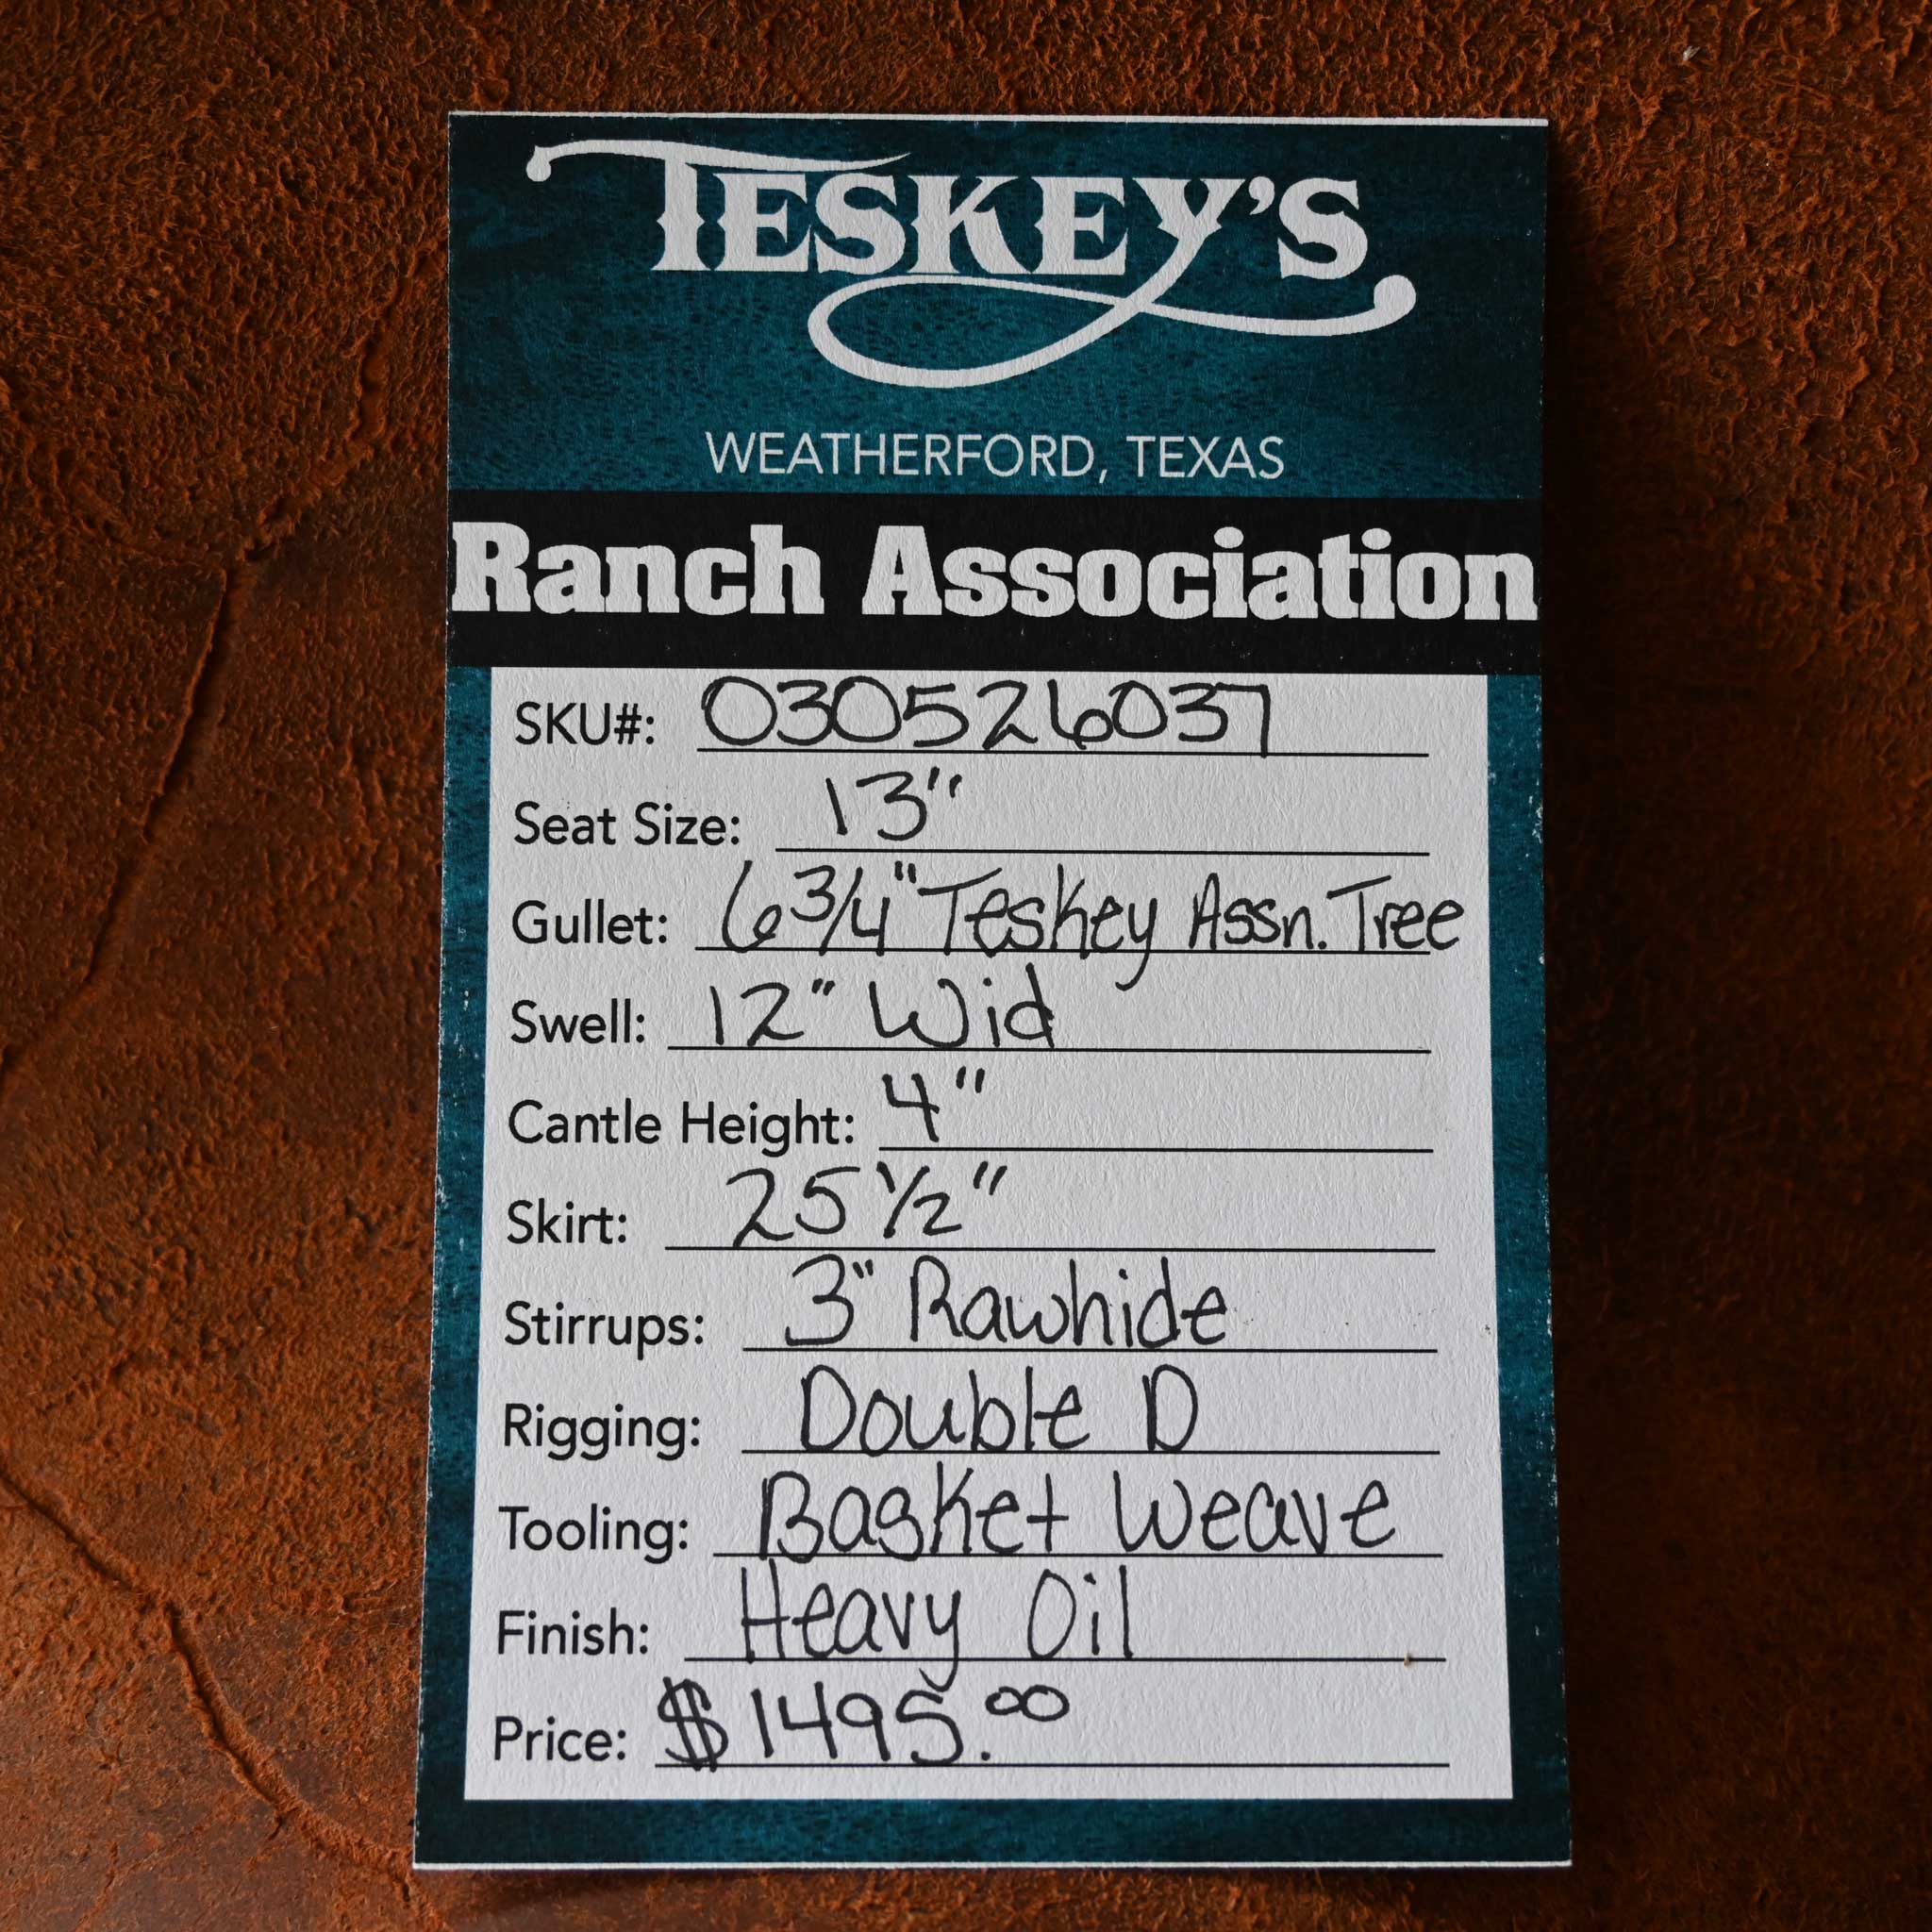 TESKEY'S
WEATHERFORD, TEXAS
Ranch Association
SKU#: 030526037
Seat Size: 13"
Gullet: 6 3/4" Teskey Assn. Tree
Swell: 12" Wid
Cantle Height: 4"
Skirt: 25 1/2"
Stirrups: 3" Rawhide
Rigging: Double D
Tooling: Basket Weave
Finish: Heavy Oil
Price: $1495.00